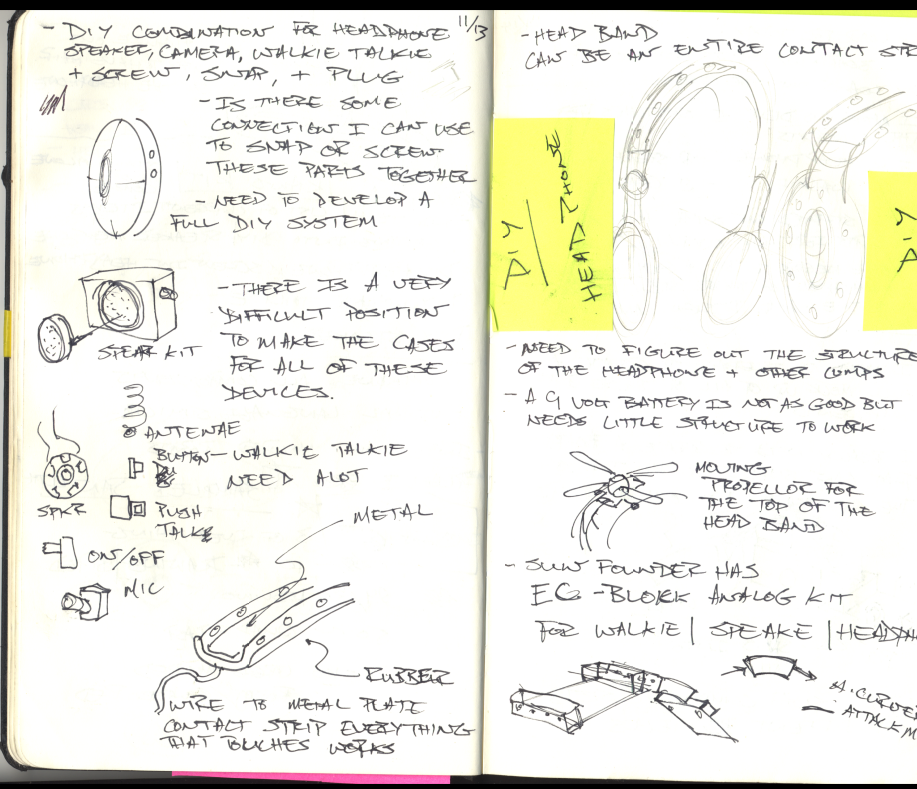 - DIY COMBINATION FOR HEADPHONE
11/13
SPEAKER, CAMERA, WALKIE TALKIE
+ SCREW, SNAP, + PLUG
- IS THERE SOME
CONNECTION I CAN USE
TO SNAP OR SCREW
THESE PARTS TOGETHER
- NEED TO DEVELOP A
FULL DIY SYSTEM
- THERE IS A VERY
DIFFICULT POSITION
TO MAKE THE CASES
FOR ALL OF THESE
DEVICES.
SPEAK KIT
ANTENAE
BUTTON - WALKIE TALKIE
NEED ALOT
SPKR
PUSH
TALK
ON/OFF
MIC
METAL
RUBBER
WIRE TO METAL PLATE
CONTACT STRIP EVERYTHING
THAT TOUCHES WORKS
- HEAD BAND
CAN BE AN ENTIRE CONTACT STR
DIY
HEAD PHONE
DIY
- NEED TO FIGURE OUT THE STRUCTURE
OF THE HEADPHONE + OTHER COMPS
- A 9 VOLT BATTERY IS NOT AS GOOD BUT
NEEDS LITTLE STRUCTURE TO WORK
MOVING
PROPELLOR FOR
THE TOP OF THE
HEAD BAND
- SUN FOUNDER HAS
EG - BLOKK ANALOG KIT
FOR WALKIE | SPEAKE | HEADPH
A. CURVE
ATTACK M